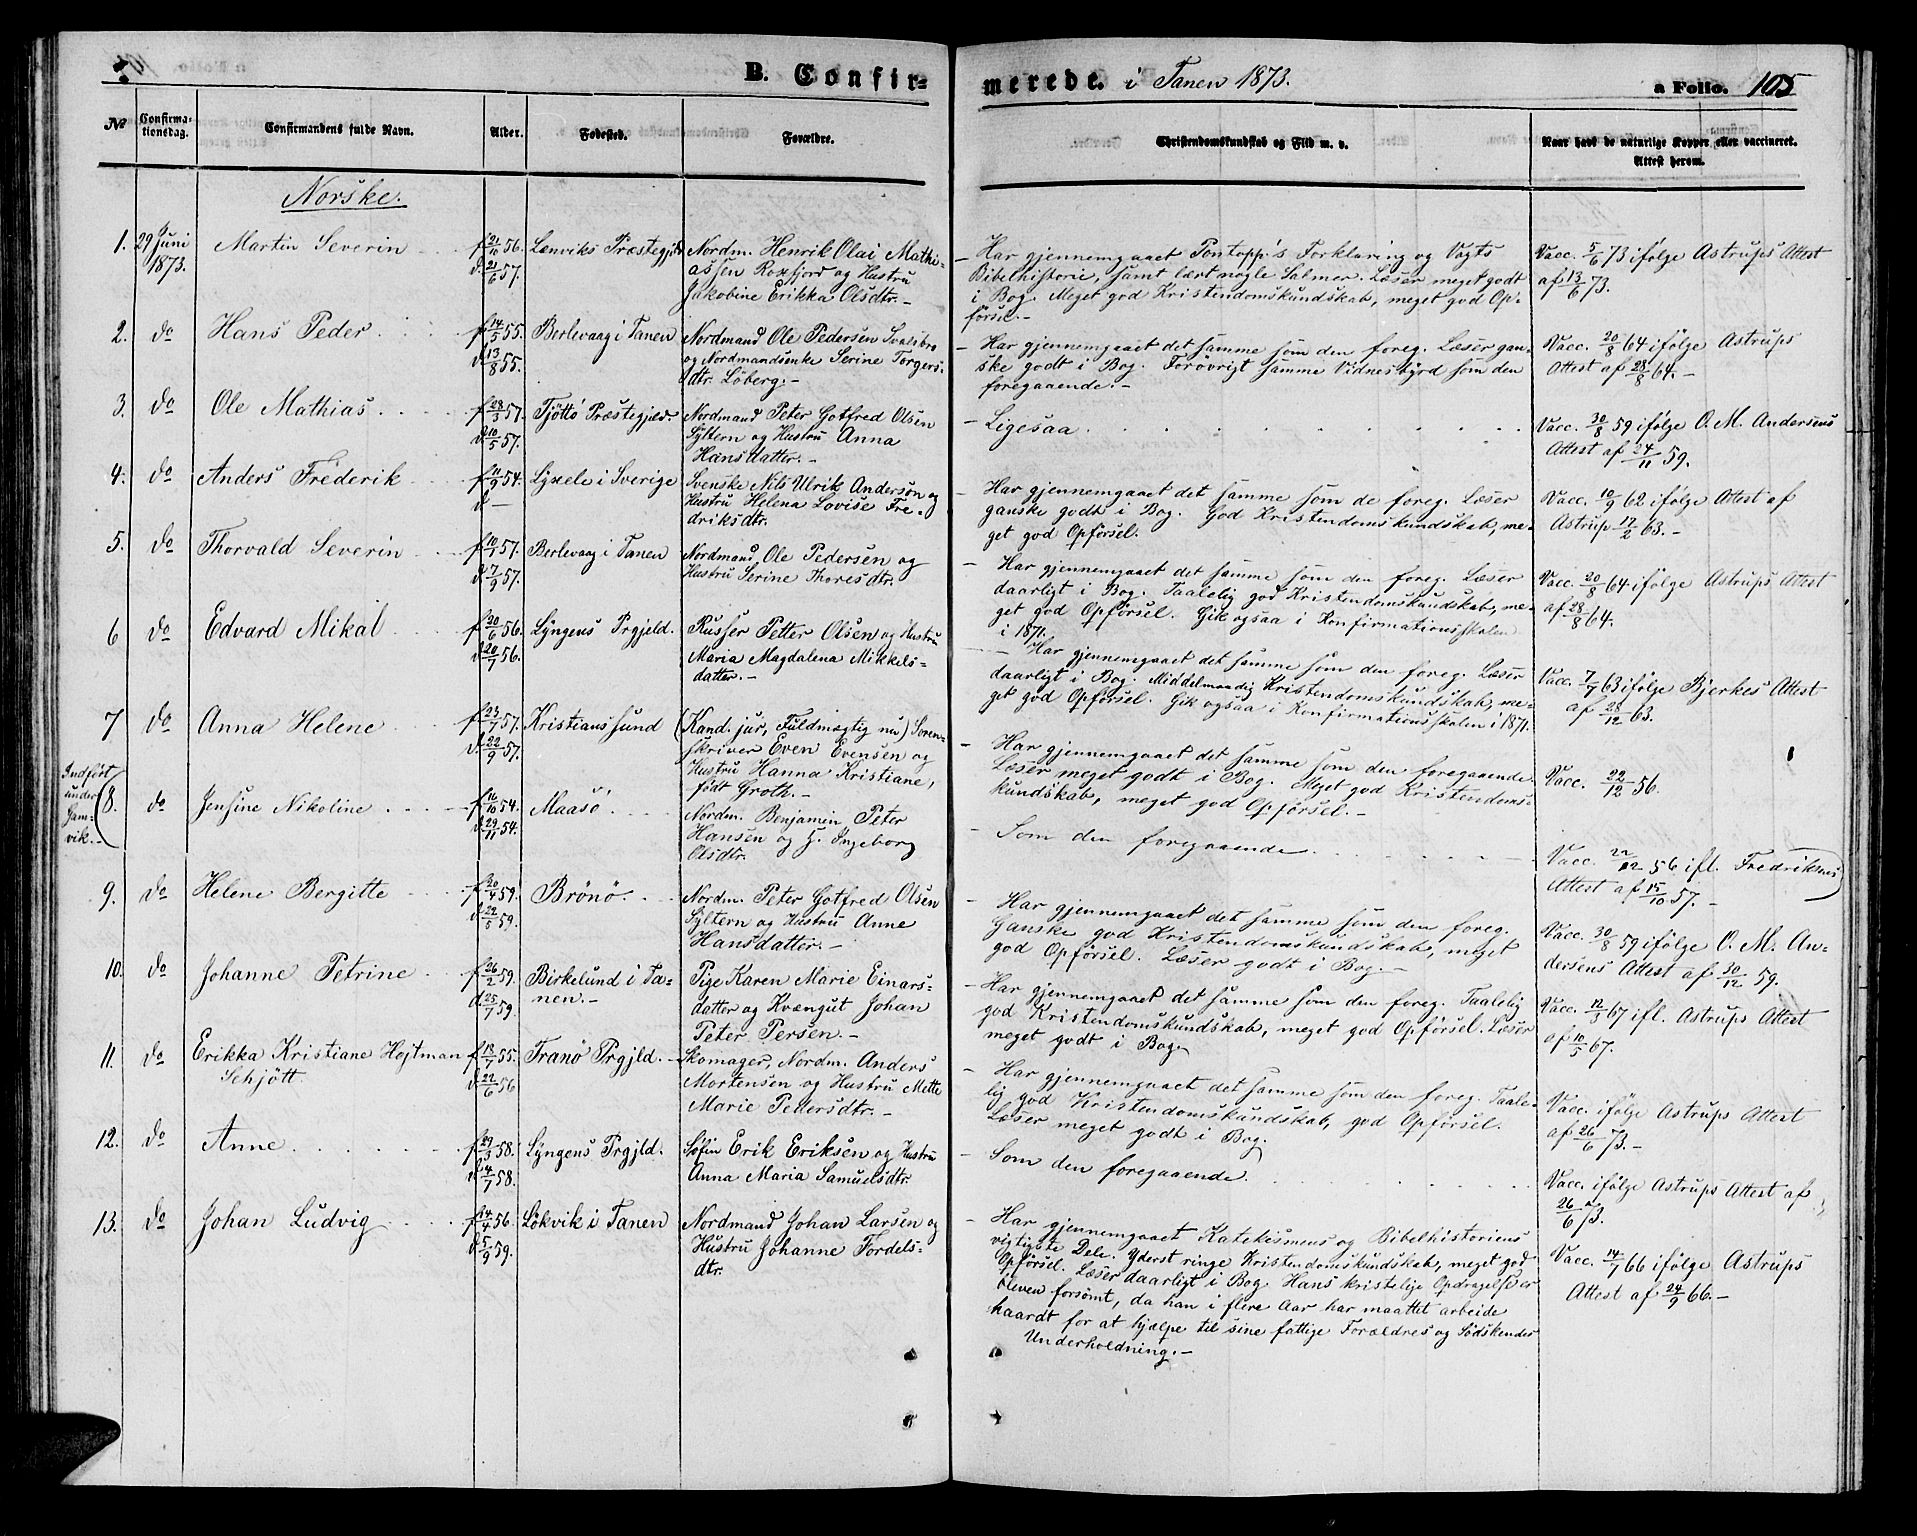 B. Confirmerede. i Tanen 1873.
a Folio. 105
№
Confirmationsdag.
Confirmandens fulde Navn.
Alder.
Fødested.
Forældre.
Christendomskundskab og Flid m. v.
Naar havt de naturlige Kopper eller vaccineret. Attest herom.
Norske.
1. 29 Juni 1873.
Martin Severin
f 21/10 56.
d. 21/6 57.
Lenviks Præstegjeld
Nordm. Henrik Olai Mathi-
assen Roxfjord og Hustru
Jakobine Erikka Olsdtr.-
- Har gjennemgaaet Pontopp's Forklaring og Vogts
Bibelhistorie, samt lært nogle Salmer. Læser meget godt
i Bog. Meget god Kristendomskundskab, meget god Op-
førsel.-
Vacc. 5/6 73 ifølge Astrups Attest
af 13/6 73.
2. do
Hans Peder
f 14/5 55.
d. 13/8 55.
Berlevaag i Tanen
Nordmand Ole Pedersen
og Nordmandsenke Serine Torgers-
dtr. Løberg.-
- Har gjennemgaaet det samme som den foreg. Læser gan-
ske godt i Bog. Forøvrigt samme Vidnesbyrd som den
foregaaende.-
Vacc. 20/8 64 ifølge Astrups
Attest af 28/8 64.-
3. do
Ole Mathias
f 28/3 57.
d. 10/5 57.
Tjøttø Præstegjeld.
Nordmand Peter Gotfred Olsen
Syltern og Hustru Anna
Hansdatter.-
- Ligesaa
Vacc. 30/8 59 ifølge O. M. Andersens
Attest af 24/11 59.
4. do
Anders Frederik
f 11/9 54.
d -
Lyxele i Sverige
Svenske Nils Ulrik Andersøn og
Hustru Helena Lovise Fre-
driksdtr.
- Har gjennemgaaet det samme som de foreg. Læser
ganske godt i Bog. God Kristendomskundskab, me-
get god Opførsel.
Vacc. 10/9 62 ifølge Attest af
Astrup 17/2 63.-
5. do
Thorvald Severin
f 10/7 57.
d. 7/9 57.
Berlevaag i Tanen
Nordmand Ole Pedersen og
Hustru Serine Thoresdtr.
- Har gjennemgaaet det samme som den foreg. Læser
daarligt i Bog. Taalelig god Kristendomskundskab, me-
get god Opførsel. Gik ogsaa i Konfirmationsskolen
i 1871.
Vacc. 20/8 64 ifølge Astrups Attest
af 28/8 64.
6 do
Edvard Mikal
f 20/6 56.
d. 20/7 56.
Lyngens Prgjeld.
Russer Petter Olsen og Hustru
Maria Magdalena Mikkels-
datter.-
- Har gjennemgaaet det samme som den foreg. Læser
daarligt i Bog. Middelmaadig Kristendomskundskab, me-
get god Opførsel. Gik ogsaa i Konfirmationsskolen i 1871.
Vacc. 7/7 63 ifølge Bjerkes Attest
af 28/12 63.
7 do
Anna Helene
f 23/7 57.
d. 22/9 57.
Kristianssund
(Kand. jur, Fuldmægtig nu) Soren-
skriver Even Evensen og
Hustru Hanna Kristiane,
født Groth.-
- Har gjennemgaaet det samme som den foregaaende.
Læser meget godt i Bog. Meget god Kristendoms-
kundskab, meget god Opførsel.-
Vacc. 22/12 56.
Indført
under
Gam-
vik.-
8. do
Jensine Nikoline
f 11/10 54.
d. 29/11 54.
Maasø
Nordm. Benjamin Peter
Hansen og H. Ingeborg
Olsdtr.
- Som den foregaaende.
Vacc. 22/12 56 ifl. Fredriksens
Attest af 15/10 57.-
9. do
Helene Bergitte
f 20/4 59.
d. 22/5 59.
Brønø.
Nordm. Peter Gotfred Olsen
Syltern og Hustru Anne
Hansdatter.-
- Har gjennemgaaet det samme som den foreg.
Ganske god Kristendomskundskab, meget
god Opførsel. Læser godt i Bog.-
Vacc. 30/8 59 ifølge O. M. An-
dersens Attest af 30/12 59.
10. do
Johanne Petrine
f 26/2 59.
d. 25/7 59.
Birkelund i Ta-
nen.-
Pige Karen Marie Einars-
datter og Kvængut Johan
Peter Persen.-
- Har gjennemgaaet det samme som den foreg. Taalelig
god Kristendomskundskab, meget god Opførsel. Læser
meget godt i Bog.
Vacc. 12/3 67 ifl. Astrups Attest
af 10/5 67.
11. do
Erikka Kristiane Hojtman
Schjött.
f 13/7 55.
d. 22/6 56
Tranø Prgjld.
- Skomager, Nordm. Anders
Mortensen og Hustru Mette
Marie Pedersdtr.-
- Har gjennemgaaet det samme som den foreg. Taale-
lig god Kristendomskundskab, god Opførsel.
Læser meget godt i Bog.
Vacc. ifølge Astrups Attest
af 26/6 73.-
12. do
Anne
f 29/3 58.
d 4/7 58.
Lyngens Prgjld.
Søfin Erik Eriksen og Hustru
Anna Maria Samuelsdtr.
- Som den foregaaende.
Vacc. ifølge Astrups Attest af
26/6 73.
13. do
Johan Ludvig
f 14/4 56.
d. 5/9 59.
Løkvik i Tanen
Nordmand Johan Larsen og
Hustru Johanne Fordels-
dtr.
- Har gjennemgaaet Katekismens og Bibelhistoriens
vigtigste Dele. Yderst ringe Kristendomskundskab, meget god
Opførsel. Læser daarligt i Bog. Hans kristelige Opdragelse er
bleven forsømt, da han i flere Aar har maattet arbeide
haardt for at hjælpe til sine fattige Forældres og Sødskendes
Underholdning.-
Vacc. 14/7 66 ifølge Astrups
Attest af 24/9 66.-